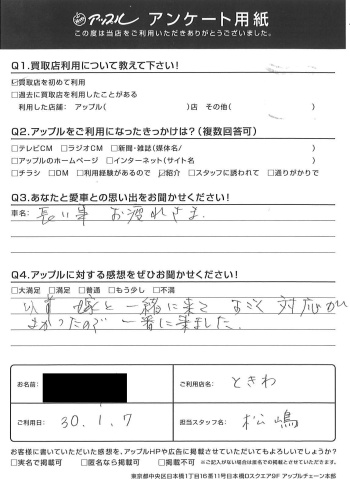 アップル アンケート用紙
この度は当店をご利用いただきありがとうございました。
Q1.買取店利用について教えて下さい!
☑買取店を初めて利用
□過去に買取店を利用したことがある
利用した店舗: アップル( )店 その他( )
Q2.アップルをご利用になったきっかけは?(複数回答可)
□テレビCM □ラジオCM □新聞・雑誌(媒体名/ )
□アップルのホームページ □インターネット(サイト名 )
□チラシ □DM □利用経験があるので ☑紹介 □スタッフに誘われて □通りがかりで
Q3.あなたと愛車との思い出をお聞かせください!
車名: 長い事 お疲れさま.
Q4.アップルに対する感想をぜひお聞かせください!
□大満足 □満足 □普通 □もう少し □不満
以前 嫁と一緒に来て すごく 対応が
よかったので 一番に来ました.
お名前:
ご利用店名: ときわ
ご利用日: 30.1.7
担当スタッフ名: 松嶋
お客様に書いていただいた感想を、アップルHPや広告に掲載させていただいてもよろしいでしょうか?
□実名で掲載可 □匿名なら掲載可 □掲載不可 ※ご記入がない場合は匿名での掲載とさせていただきます。
東京都中央区日本橋1丁目16番11号日本橋Dスクエア9F アップルチェーン本部